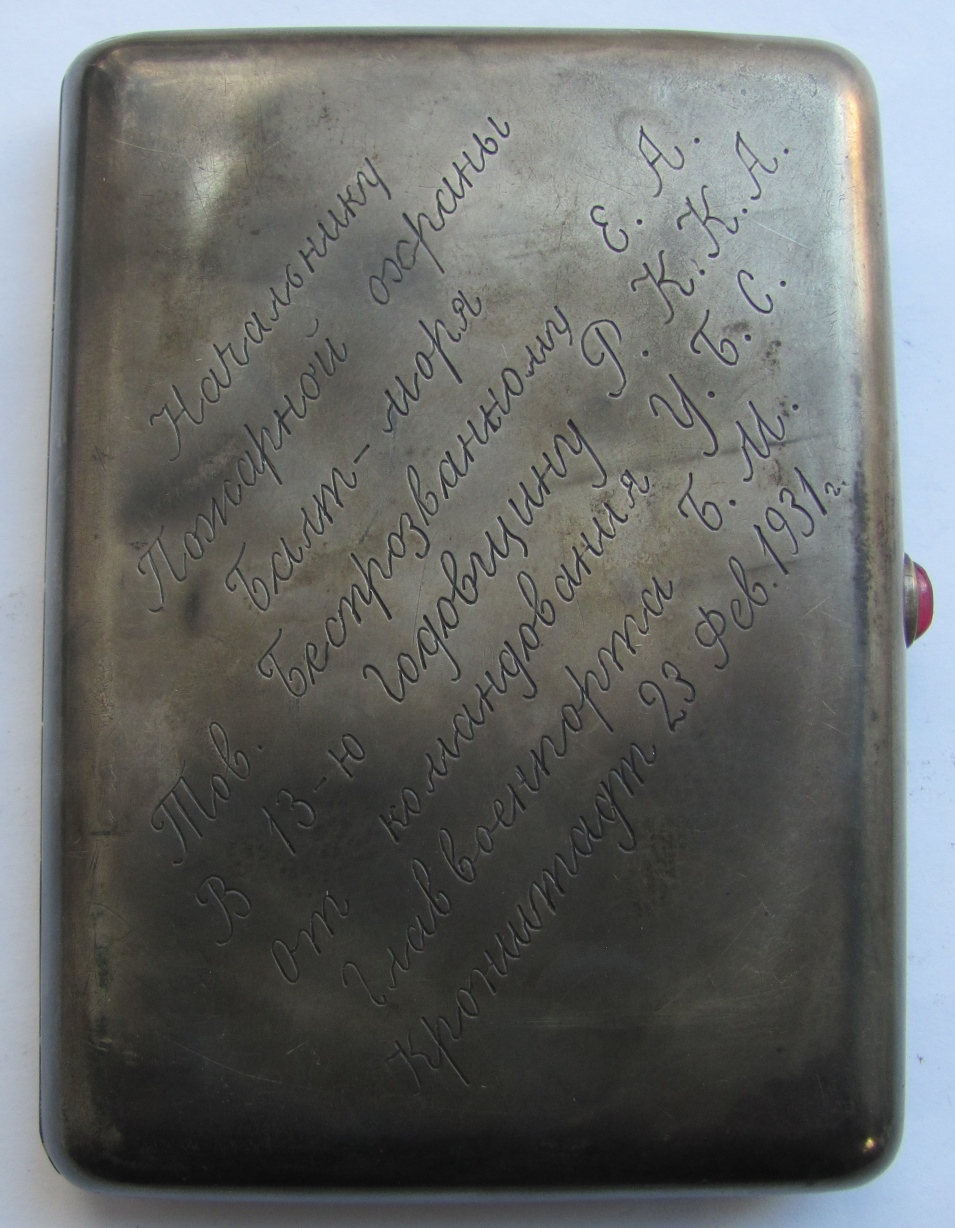 Начальнику
Пожарной охраны
Балт-моря
Тов. Беспрозванному Е. А.
В 13-ю годовщину Р. К. К. А.
от командования У. Б. С.
Главвоенпорта Б. М.
Кронштадт 23 Фев. 1931 г.